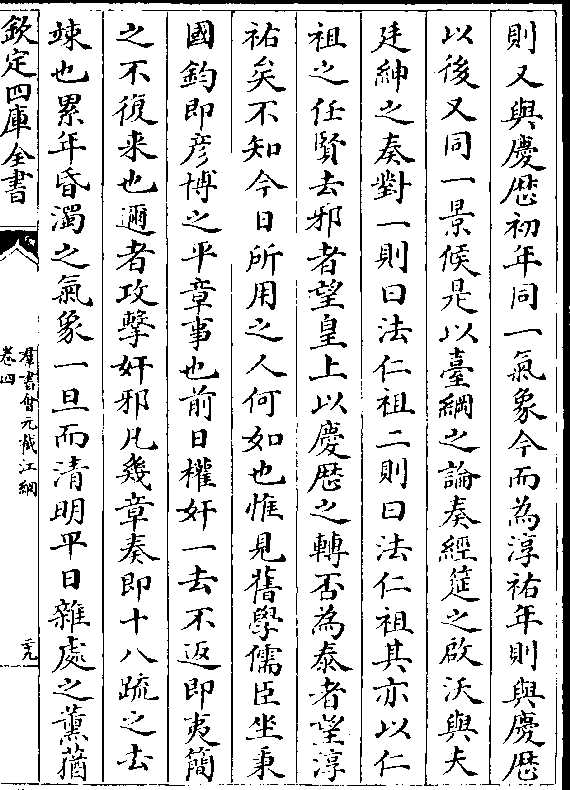 則又與慶厯初年同一氣象今而為淳祐年則與慶厯
以後又同一景候是以臺綱之論奏經筵之啟沃與夫
廷紳之奏對一則曰法仁祖二則曰法仁祖其亦以仁
祖之任賢去邪者望皇上以慶厯之轉否為泰者望淳
祐矣不知今日所用之人何如也惟見舊學儒臣坐秉
國鈞即彦博之平章事也前日權奸一去不返即夷簡
之不復来也邇者攻擊奸邪凡幾章奏即十八疏之去
竦也累年昏濁之氣象一旦而清明平日雜處之薰蕕
欽定四庫全書
羣書會元截江網
卷四
二九